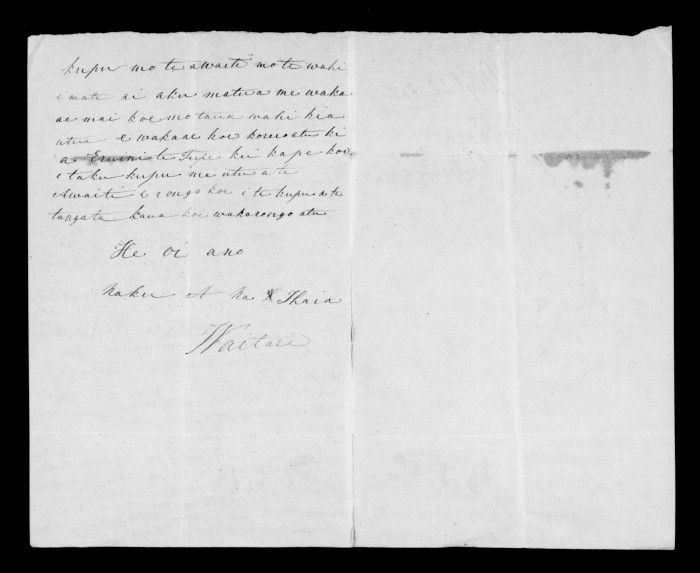 kupu mo te awaiti mo te wahi
e mate ai aku matua me waka
ae mai koe mo taua wahi kia
utua e wakaae koe korerotu ki
a te Tupe kei kape koe
i taku kupu me utu a te
Awaiti e rongo koe i te kupu o te
tangata kaua koe wakarongo atu
He oi ano
Naku Na Ihaia
Waitara